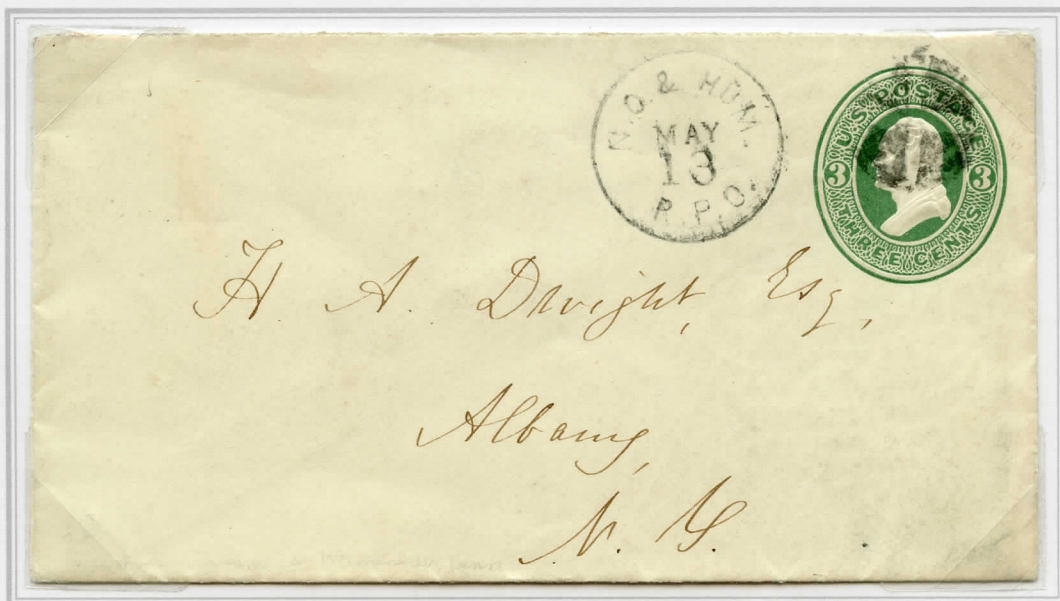 N.O. & HUM.
MAY
13
R.P.O.
U.S. POSTAGE
3 3
THREE CENTS
H A. Dwight, Esq,
Albany,
N. Y.